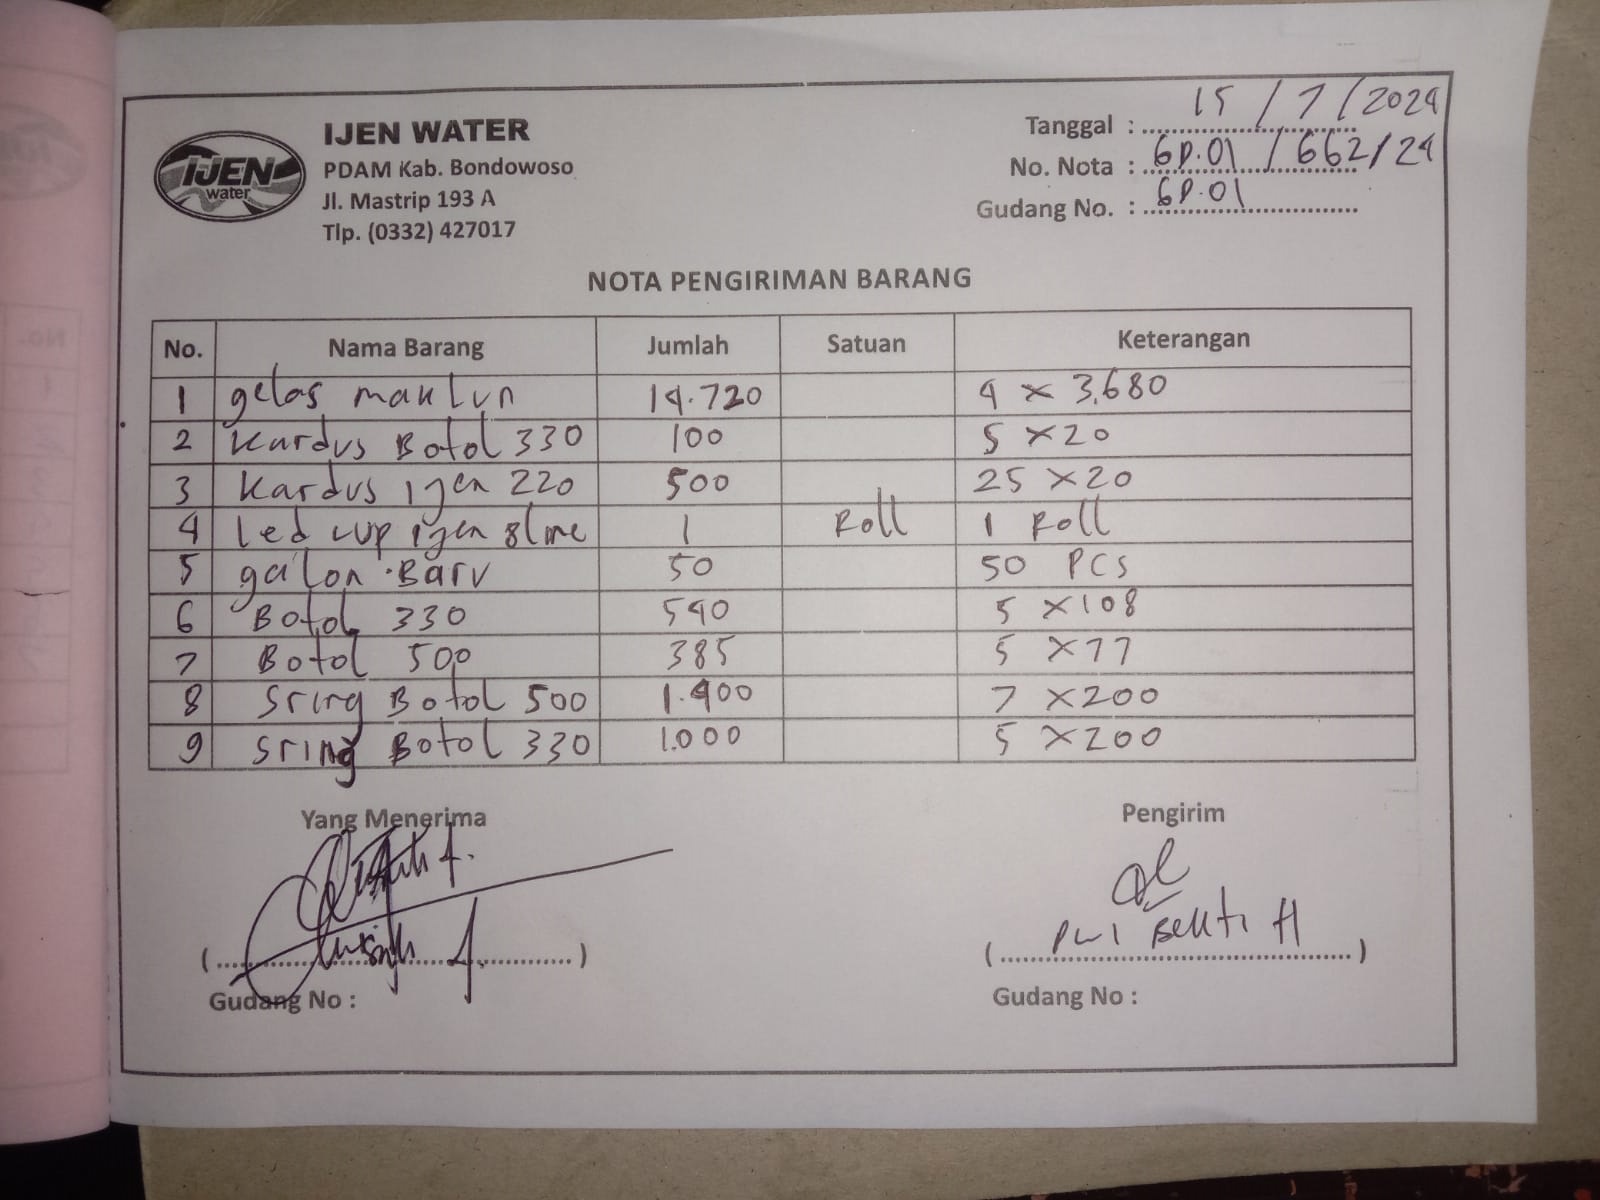 IJEN WATER
PDAM Kab. Bondowoso
Jl. Mastrip 193 A
Tlp. (0332) 427017
IJEN
water
Tanggal : 15 / 7 / 2024
No. Nota : GD.01 / 662 / 24
Gudang No. : GD.01
NOTA PENGIRIMAN BARANG
No. Nama Barang Jumlah Satuan Keterangan
1 gelas maklun 14.720 4 x 3.680
2 Kardus Botol 330 100 5 x 20
3 Kardus ijen 220 500 25 x 20
4 Led cup ijen 8 line 1 Roll 1 Roll
5 galon Baru 50 50 PCS
6 Botol 330 540 5 x 108
7 Botol 500 385 5 x 77
8 Sring Botol 500 1.400 7 x 200
9 Sring Botol 330 1.000 5 x 200
Yang Menerima Pengirim
(.....) ( Dwi Bekti H )
Gudang No : Gudang No :